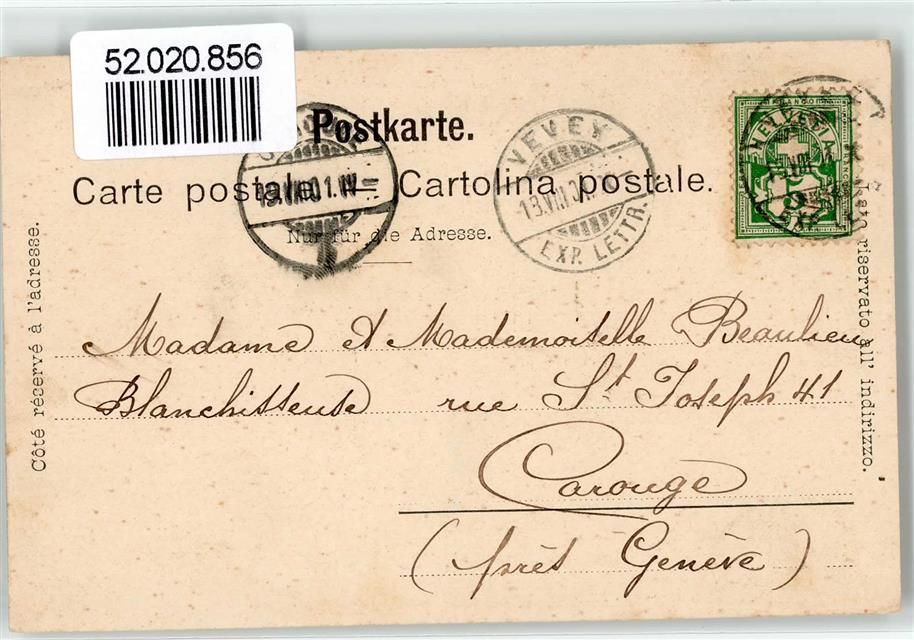 52.020.856
Postkarte.
Carte postale. — Cartolina postale.
Nur für die Adresse.
Côté réservé à l'adresse.
Lato riservato all' indirizzo.
VEVEY
EXP. LETTR.
Madame et Mademoiselle Beaulieu
Blanchisseuse rue St Joseph 41
Carouge
(près Genève)